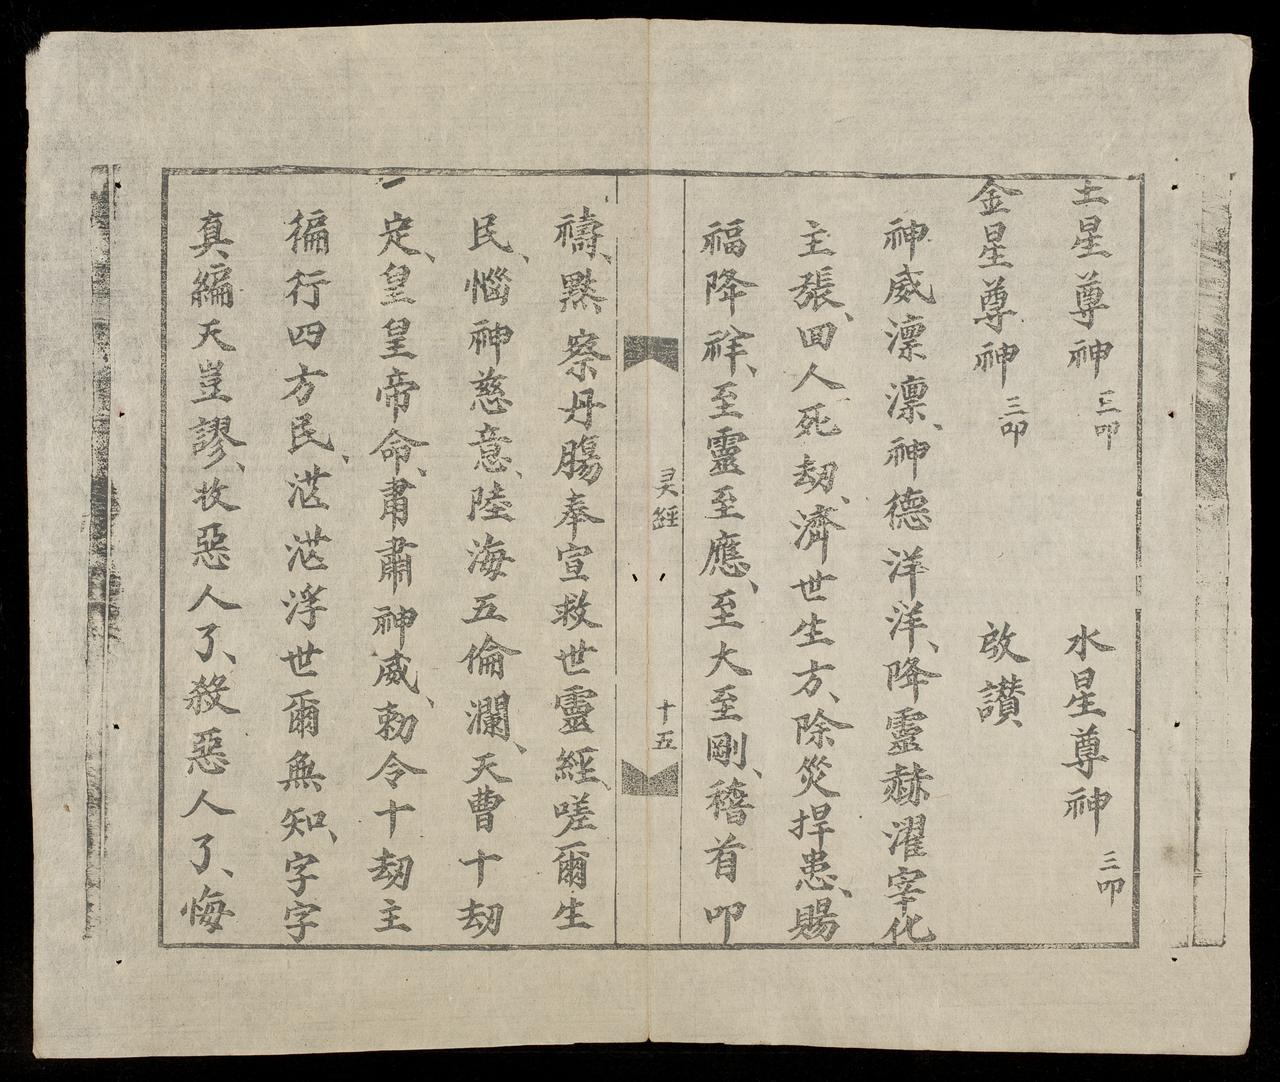 土星尊神 三叩 水星尊神 三叩
金星尊神 三叩 啟讚
神威凛凛、神德洋洋、降靈赫濯宰化
主張、回人死劫、濟世生方、除災捍患、賜
福降祥、至靈至應、至大至剛、稽首叩
灵經 十五
禱、默察丹腸奉宣救世靈經、嗟爾生
民、惱神慈意、陸海五倫瀾、天曹十劫
定、皇皇帝命、肅肅神威、勅令十劫主
徧行四方民、茫茫浮世爾無知、字字
真編天豈謬、收惡人了、殺惡人了、悔